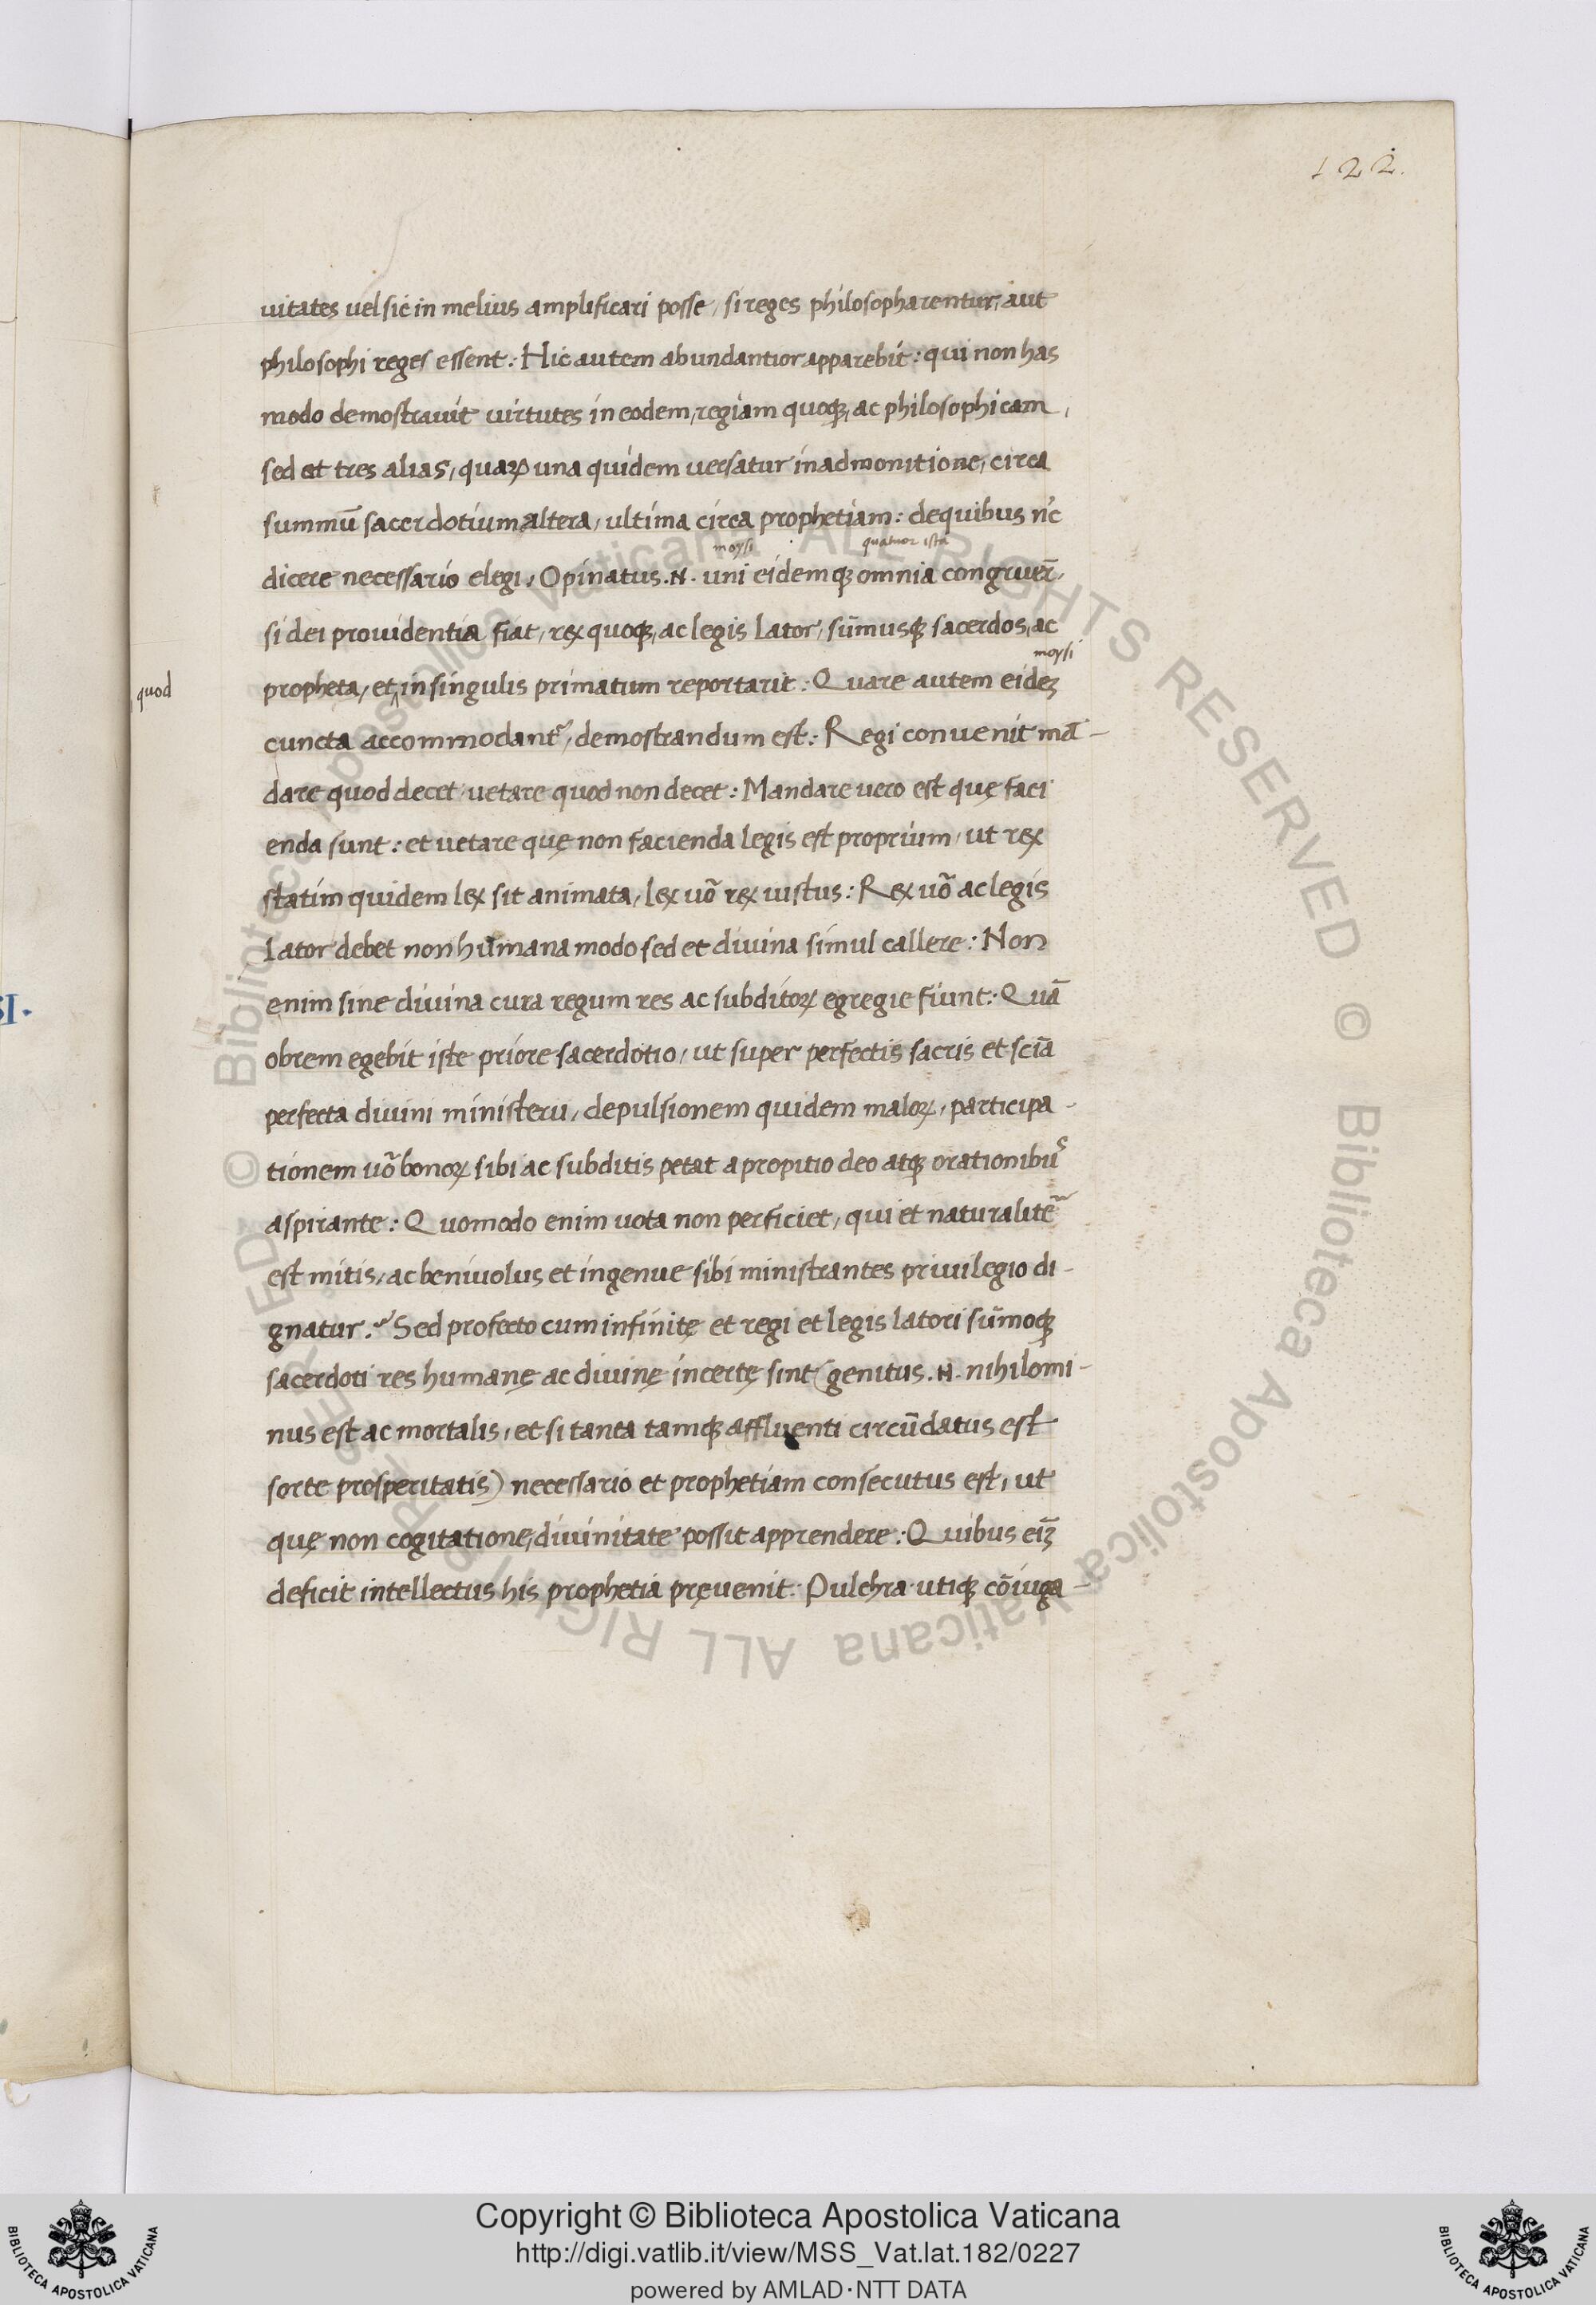 122.
uitates uel sic in melius amplificari posse, si reges philosopharentur, aut
philosophi reges essent: Hic autem abundantior apparebit: qui non has
modo demostrauit uirtutes in eodem, regiam quoqꝫ, ac philosophicam,
sed et tres alias, quaꝝ una quidem uersatur in admonitione, circa
summū sacerdotium altera, ultima circa prophetiam: de quibus nc̄
moysi quatuor ista
dicere necessario elegi, Opinatus .N. uni eidemqꝫ omnia congruer̄,
si dei prouidentia fiat, rex quoqꝫ, ac legis lator, sūmusqꝫ sacerdos, ac
moysi
quod
propheta, et‸in singulis primatum reportarit: Quare autem eideꝫ
cuncta accommodant᷑, demostrandum est: Regi conuenit mā-
dare quod decet, uetare quod non decet: Mandare uero est quę faci
enda sunt: et uetare quę non facienda legis est proprium, ut rex
statim quidem lex sit animata, lex uō rex iustus: Rex uō ac legis
lator debet non humana modo sed et diuina simul callere: Non
enim sine diuina cura regum res ac subditoꝝ egregie fiunt: Quā
obrem egebit iste priore sacerdotio, ut super perfectis sacris et sciā
perfecta diuini ministerii, depulsionem quidem maloꝝ, participa-
tionem uō bonoꝝ sibi ac subditis petat a propitio deo atqꝫ orationibus
aspirante: Quomodo enim uota non perficiet, qui et naturalitē
est mitis, ac beniuolus et ingenue sibi ministrantes priuilegio di-
gnatur. Sed profecto cum infinitę et regi et legis latori sūmoqꝫ
sacerdoti res humanę ac diuinę incertę sint (genitus .N. nihilomi-
nus est ac mortalis, et si tanta tamqꝫ affluenti circūdatus est
sorte prosperitatis) necessario et prophetiam consecutus est, ut
quę non cogitatione, diuinitate possit apprendere: Quibus eīꝫ
deficit intellectus his prophetia pręuenit: Pulchra utiqꝫ cōiuga-
SI.
© Biblioteca Apostolica Vaticana ALL RIGHTS RESERVED © Biblioteca Apostolica Vaticana ALL RIGHTS RESERVED
Copyright © Biblioteca Apostolica Vaticana
http://digi.vatlib.it/view/MSS_Vat.lat.182/0227
powered by AMLAD·NTT DATA
BIBLIOTECA APOSTOLICA VATICANA
BIBLIOTECA APOSTOLICA VATICANA